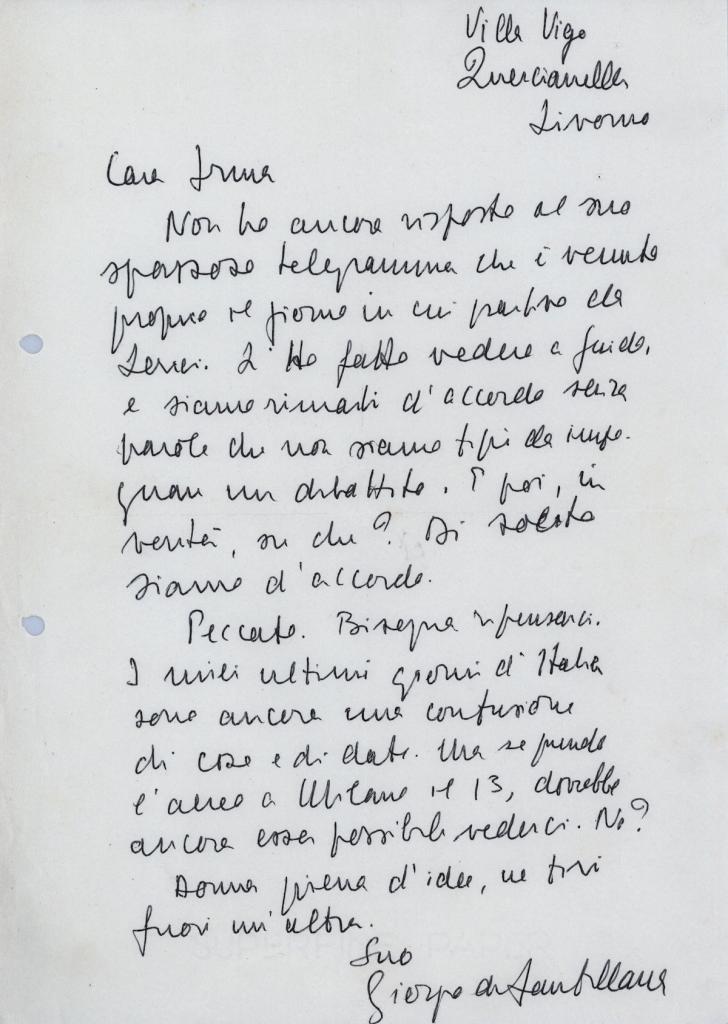 Villa Vigo
Quercianella
Livorno
Cara Irma
Non ho ancora risposto al suo
spassoso telegramma che è venuto
proprio il giorno in cui partivo da
Lerici. L'ho fatto vedere a Guido,
e siamo rimasti d'accordo senza
parole che non siamo tipi da impe-
gnare un dibattito. E poi, in
verità, su che? Di solito
siamo d'accordo.
Peccato. Bisogna ripensarci.
I miei ultimi giorni d'Italia
sono ancora una confusione
di cose e di date. Ma se prendo
l'aereo a Milano il 13, dovrebbe
ancora esser possibile vederci. No?
Donna piena d'idee, ne tiri
fuori un'altra.
Suo
Giorgio de Santillana